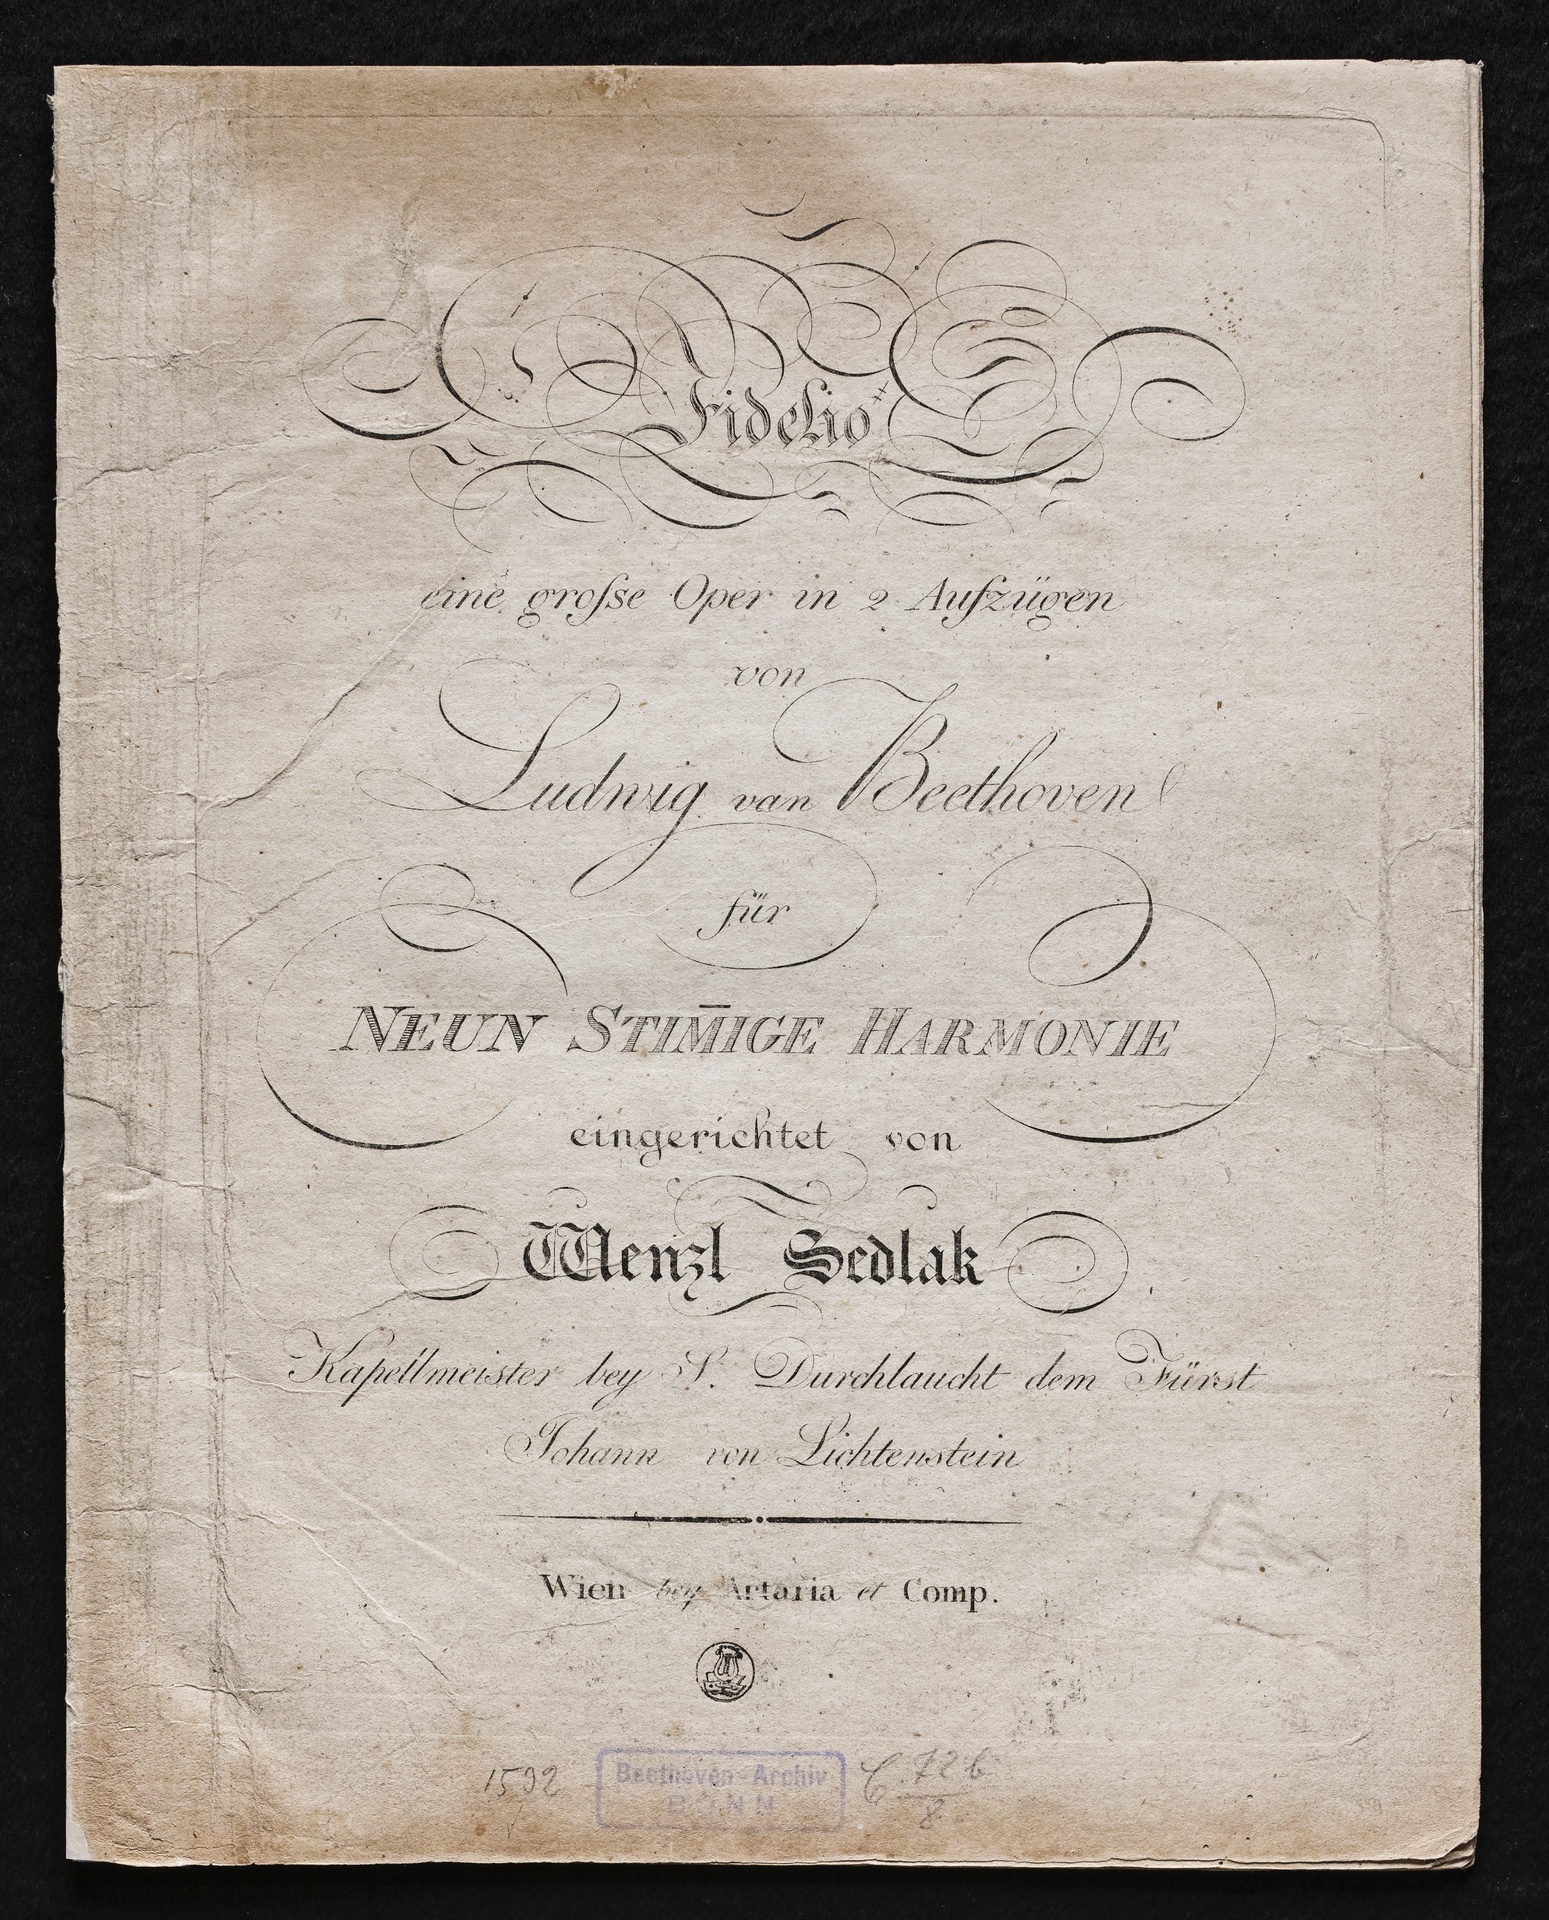 Fidelio
eine große Oper in 2 Aufzügen
von
Ludwig van Beethoven
für
NEUN STIM̅IGE HARMONIE
eingerichtet von
Wenzl Sedlak
Kapellmeister bey S. Durchlaucht dem Fürst
Johann von Lichtenstein
Wien bey Artaria et Comp.
1592
Beethoven-Archiv
BONN
C 72 b
8